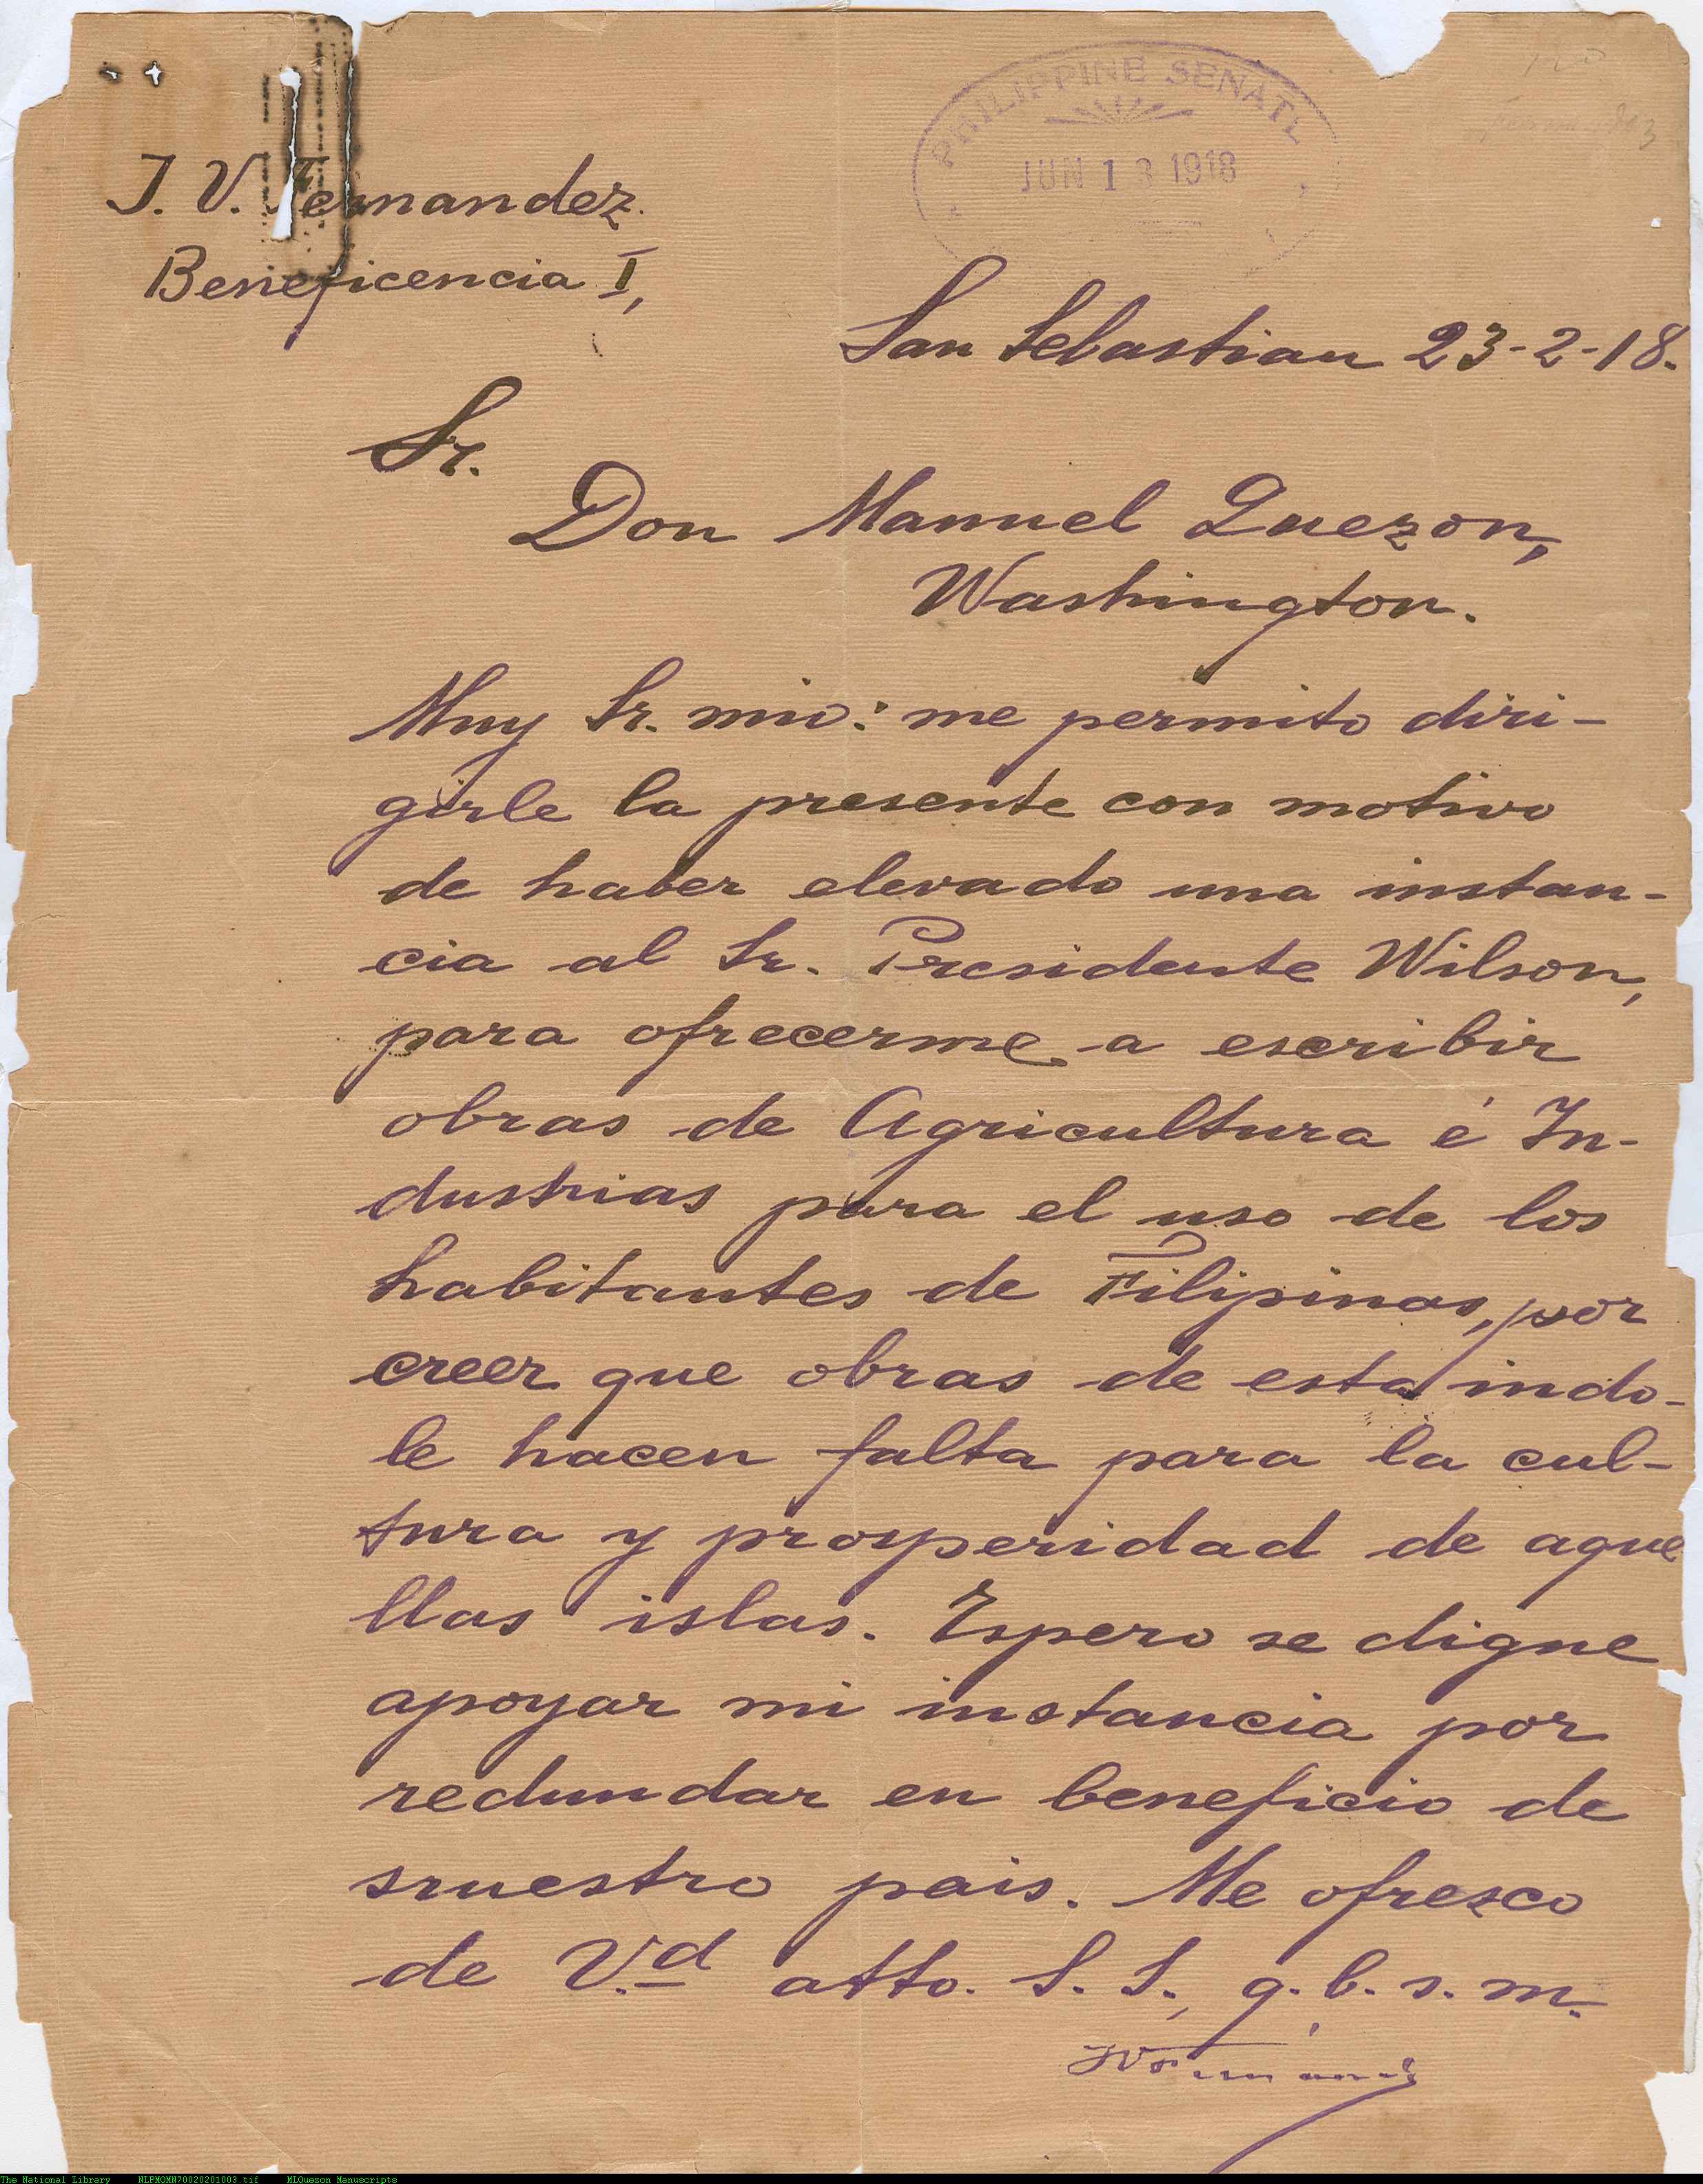 PHILIPPINE SENATE
JUN 13 1918
J. V. Fernandez.
Beneficencia I,
San Sebastian 23-2-18.
Sr.
Don Manuel Quezon,
Washington.
Muy Sr. mio: me permito diri-
girle la presente con motivo
de haber elevado una instan-
cia al Sr. Presidente Wilson,
para ofrecerme a escribir
obras de Agricultura é In-
dustrias para el uso de los
habitantes de Filipinas, por
creer que obras de esta indo-
le hacen falta para la cul-
tura y prosperidad de aque
llas islas. Espero se digne
apoyar mi instancia por
redundar en beneficio de
snuestro pais. Me ofrezco
de V.d atto. S. S., q. b. s. m.
The National Library NLPMQMN70020201003.tif MLQuezon Manuscripts